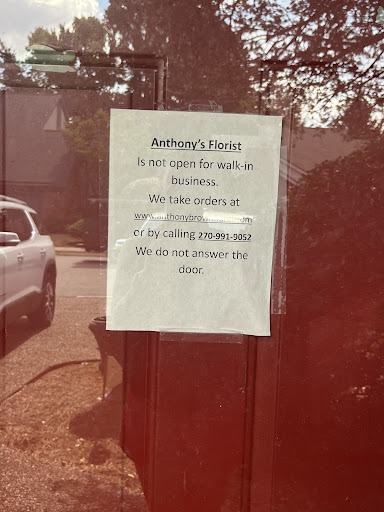 Anthony's Florist
Is not open for walk-in
business.
We take orders at
or by calling 270-991-9052
We do not answer the
door.